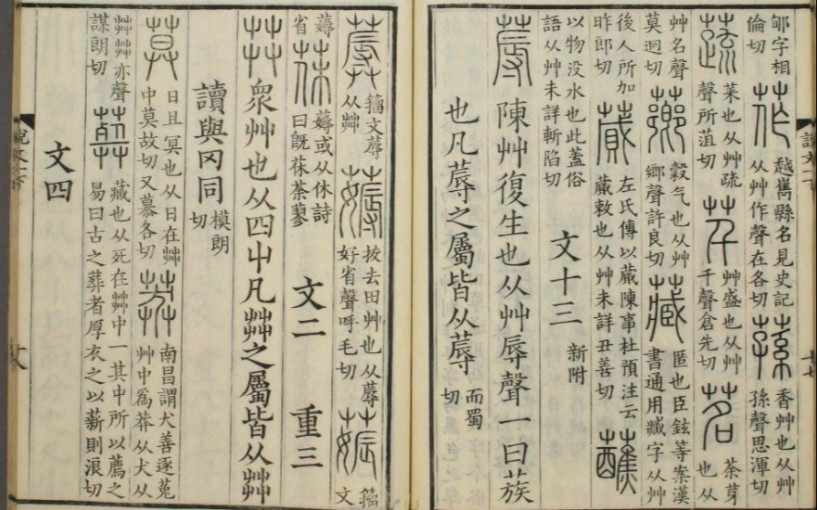 鄒字相倫切 莋 越嶲縣名見史記从艸作聲在各切 蓀 香艸也从艸孫聲思渾切
蔬 菜也从艸疏聲所菹切 芊 艸盛也从艸千聲倉先切 茗 荼芽也从
艸名聲莫迥切 薌 穀气也从艸鄉聲許良切 藏 匿也臣鉉等案漢書通用臧字从艸
後人所加昨郎切 蕆 左氏傳以蕆陳事杜預注云蕆敕也从艸未詳丑善切 蘸
以物没水也此蓋俗語从艸未詳斬陷切 文十三 新附
蓐 陳艸復生也从艸辱聲一曰蔟
也凡蓐之屬皆从蓐 而蜀切
蓐 籒文蓐从茻 薅 披去田艸也从蓐好省聲呼毛切 薅 籒文
薅省 茠 薅或从休詩曰既茠荼蓼 文二 重三
茻 眾艸也从四屮凡茻之屬皆从茻
讀與冈同 模朗切
莫 日且冥也从日在茻中莫故切又慕各切 莽 南昌謂犬善逐菟艸中爲莽从犬从
茻茻亦聲謀朗切 葬 藏也从死在茻中一其中所以薦之易曰古之葬者厚衣之以薪則浪切
文四